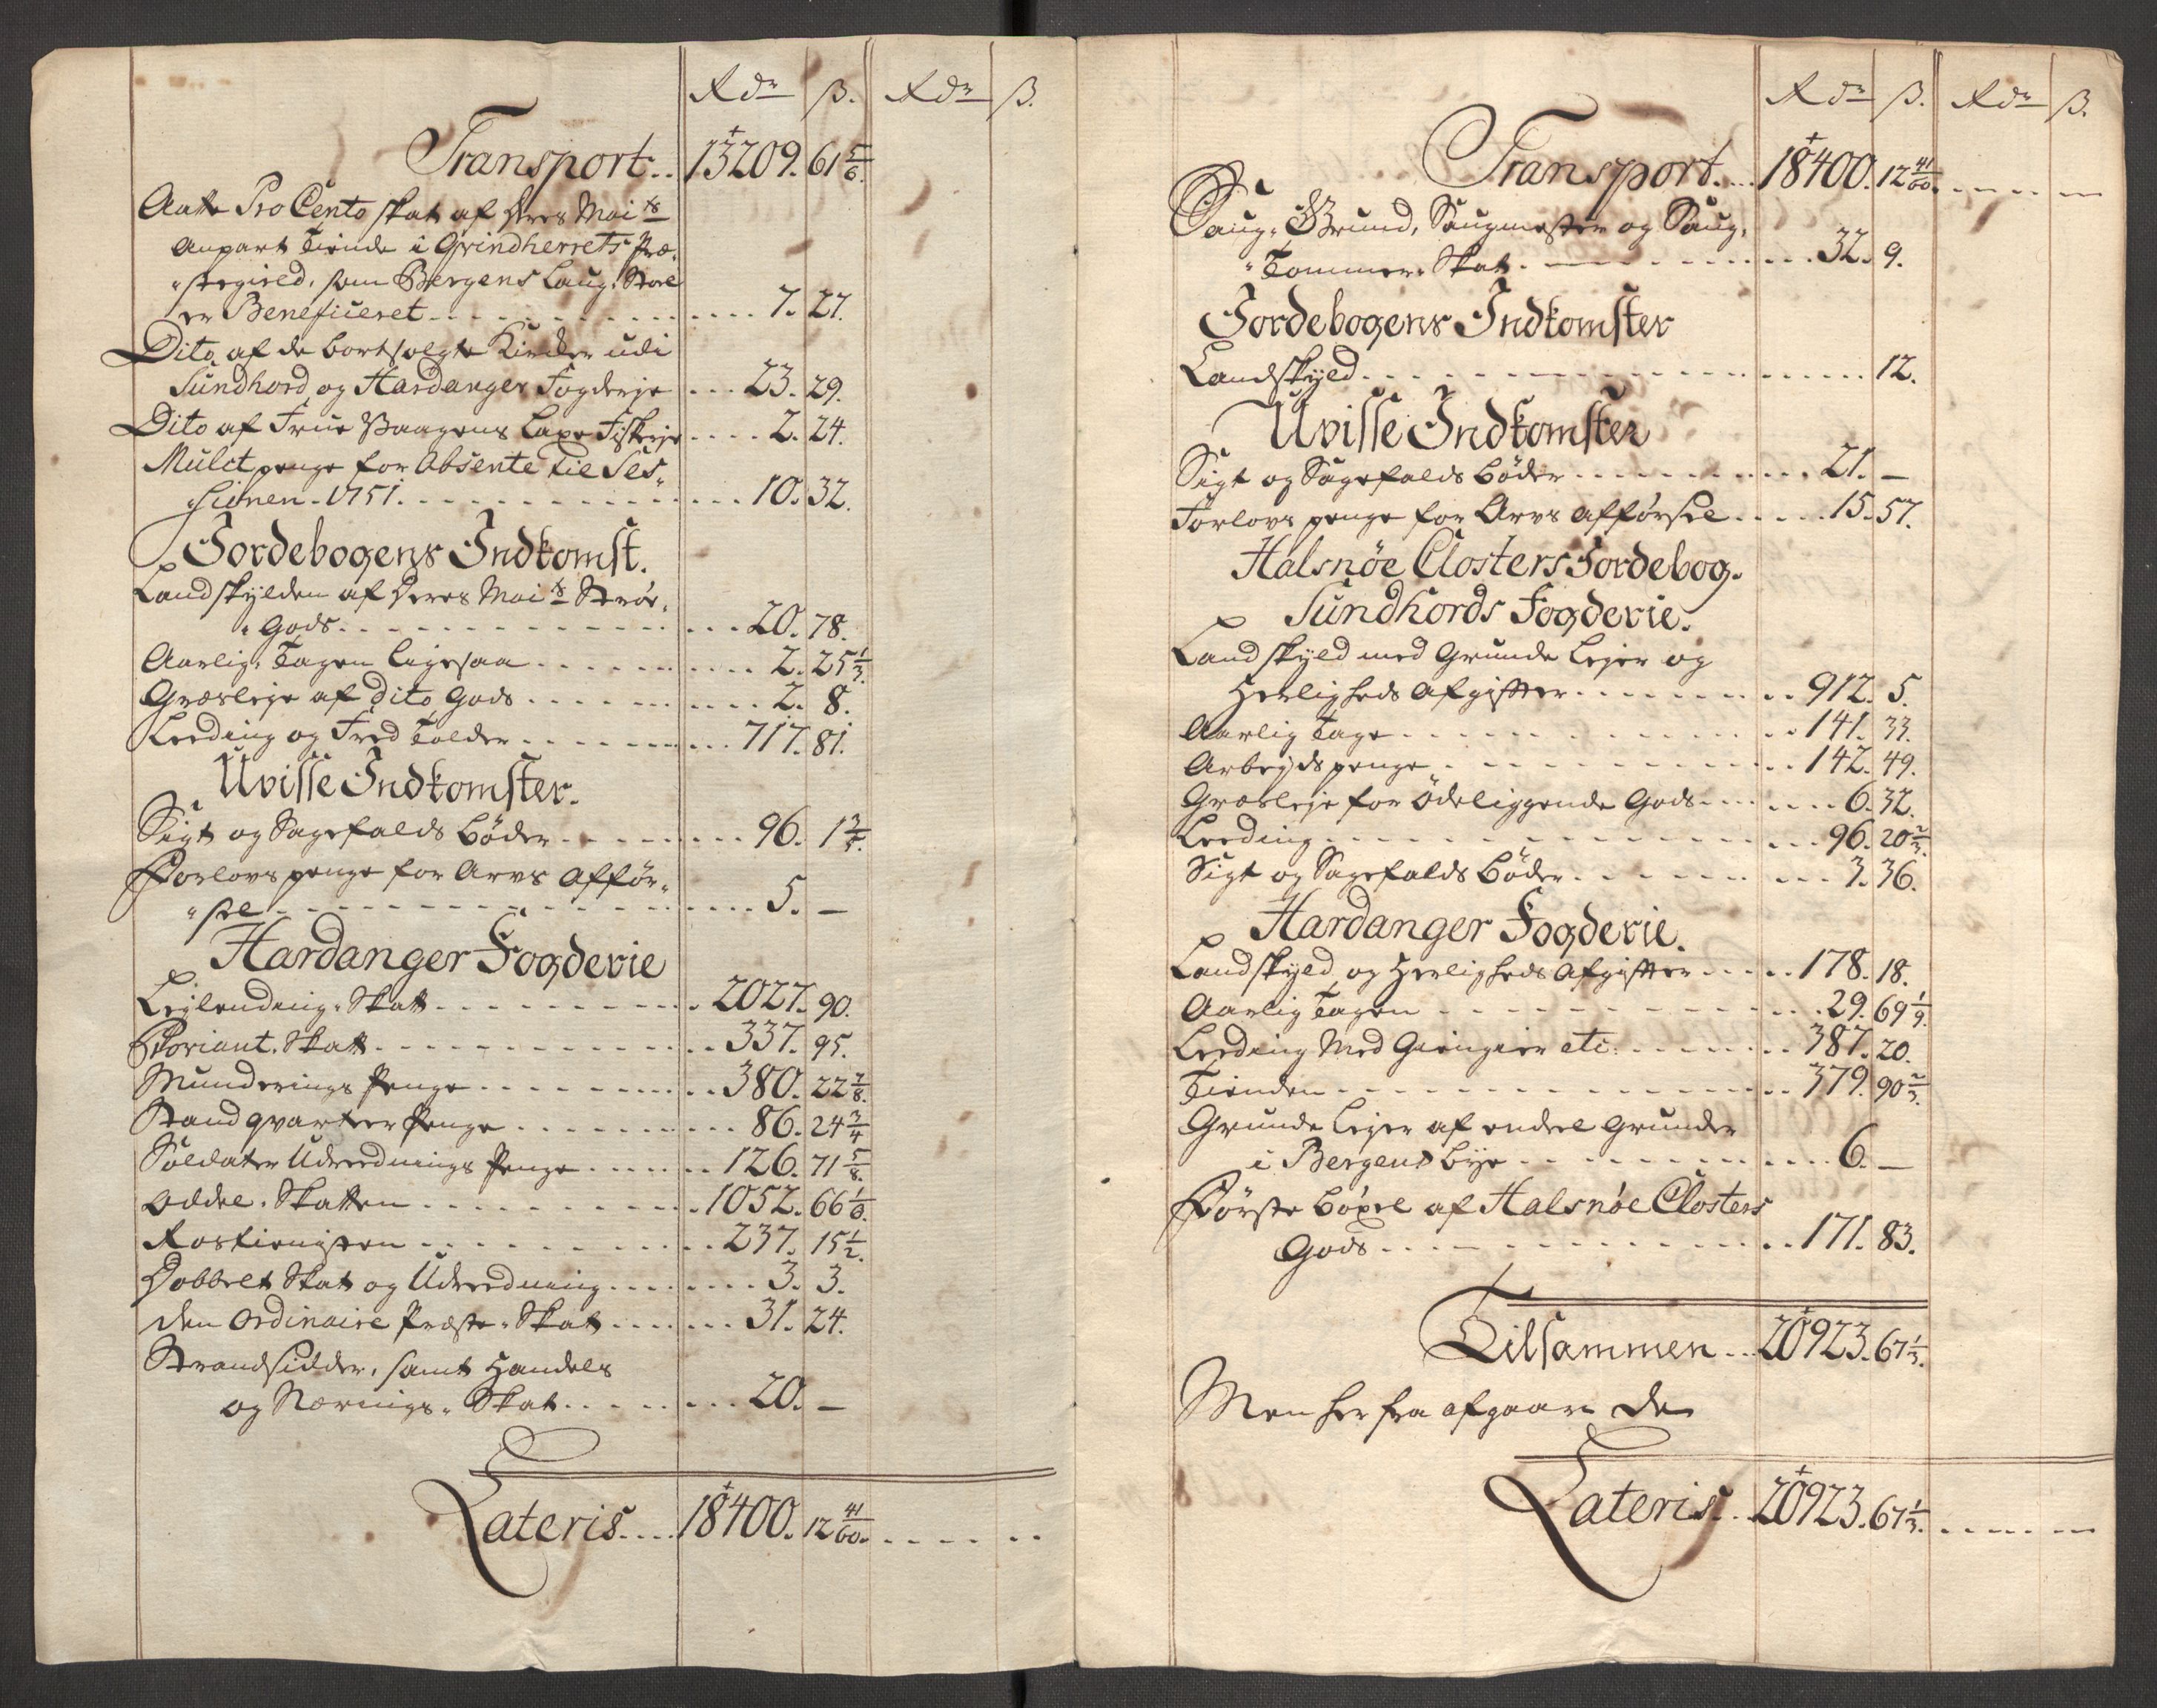 Rdr ß. Rdr ß.
Transport.. 13209. 61 5/6.
Aatte Pro Cento skat af Deres Mai ts
Anpart Tiende i Qvindherrets Præ„
„stegield, som Bergens Laug-Stoel
er Beneficeret . . . . 7. 27.
Dito af de bortsolgte Kirker udi
Sundhord og Hardanger Fogderje . . . 23. 29.
Dito af Frue Waagens Laxe Fiskerje . . . . 2. 24.
Mulct penge for Absente til Ses„
„sionen 1751. . . . 10. 32.
Jordebogens Indkomst.
Landskylden af Deres Mai ts Strøe„
„Gods . . . 20. 78.
Aarlig Tagen ligesaa . . . . 2. 25 1/3.
Græsleje af dito Gods . . . . 2. 8.
Leeding og Fred Tolder . . . 717. 81.
Uvisse Indkomster.
Sigt og Sagefalds bøder . . . 96. 1 2/5.
Forlovs penge for Arvs Afför„
„sel . . . . 5. —
Hardanger Fogderie
Lejlending-Skatt . . . 2027. 90.
Proviant-Skatt . . . 337. 95.
Munderings Penge . . . 380. 22 7/8.
Standqvarteer Penge . . . 86. 24 3/4
Soldater Udreednings Penge . . . 126. 71 5/8.
Oddel-Skatten . . . 1052. 66 1/6.
Rostienisten . . . 237. 15 1/2.
Dobbelt Skat og Udreedning . . . 3. 3.
den Ordinaire Præste-Skat . . . 31. 24.
Strandsidder, samt Handels
og Nærings-Skat . . . 20. —
Lateris.... 18400. 12 41/60.
Rdr ß. Rdr ß.
Transport.... 18400. 12 41/60.
Saug-Grund, Saugmester og Saug„
„Tommer-Skat . . . 32. 9.
Jordebogens Indkomster
Landskyld . . . 12.
Uvisse Indkomster
Sigt og Sagefalds bøder . . . 21. —
Forlovs penge for Arvs Afförsel . . . 15. 57.
Halsnöe Closters Jordebog.
Sundhords Fogderie.
Landskyld med Grunde Lejer og
Herligheds Afgifter . . . 912. 5.
Aarlig Tage . . . 141. 33.
Arbejds penge . . . 142. 49.
Græsleje for ödeliggende Gods . . . 6. 32.
Leeding . . . 96. 20 2/3.
Sigt og Sagefalds bøder . . . 3. 36.
Hardanger Fogderie.
Landskyld og Herligheds Afgifter . . . 178. 18.
Aarlig Tagen . . . 29. 69 1/9.
Leeding Med Giengier etc: . . . 387. 20.
Tienden . . . 379. 90 2/3.
Grunde Lejer af endeel Grunder
i Bergens bye . . . 6. —
Förste böxel af Halsnöe Closters
Gods . . . 171. 83.
Tilsammen... 20923. 67 1/3.
Men her fra afgaar de
Lateris... 20923. 67 1/3.